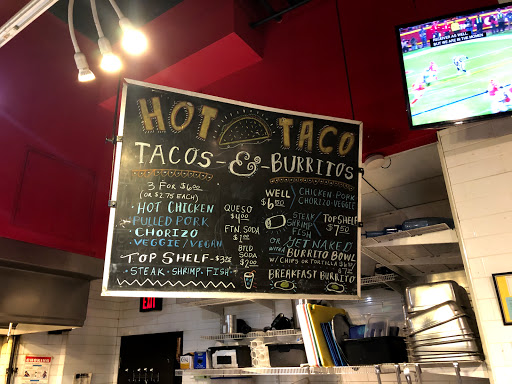 RECEIVER AS WELL.
BUT WE ARE IN THE MOMENT
HOT TACO
TACOS-&-BURRITOS
3 FOR $6.00
(OR $2.75 EACH)
HOT CHICKEN
PULLED PORK
CHORIZO
VEGGIE/VEGAN
TOP SHELF-$3.25
STEAK-SHRIMP-FISH
QUESO
$4.00
FTN. SODA
$1.00
BTLD
SODA
$2.00
WELL
CHICKEN-PORK
CHORIZO-VEGGIE
STEAK
SHRIMP
FISH
TOP SHELF
OR GET NAKED
WITH A BURRITO BOWL
W/ CHIPS OR TORTILLA
BREAKFAST BURRITO
EXIT